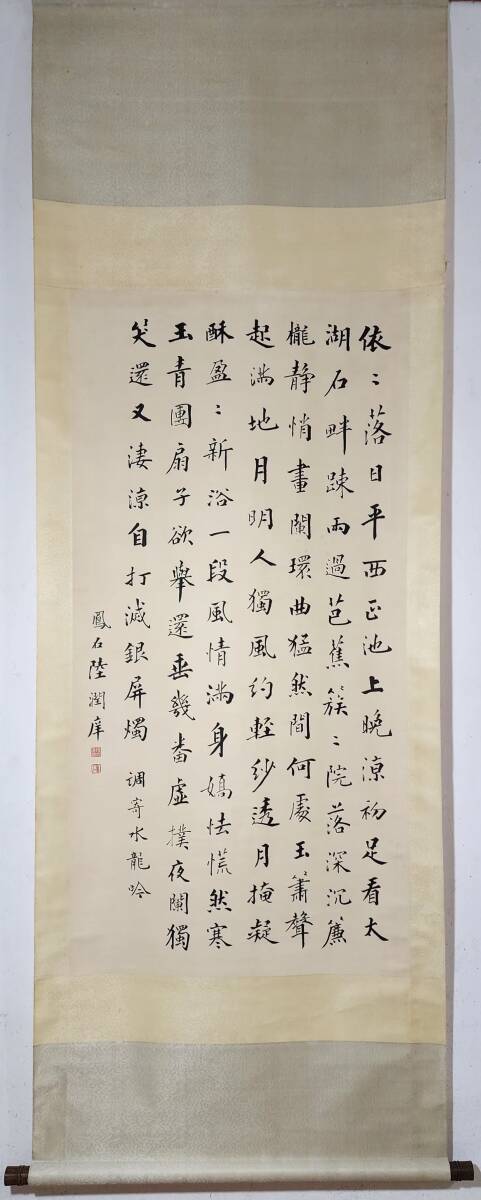 依〻落日平西正池上晚涼初足看太
湖石畔疎雨過芭蕉簇〻院落深沉簾
櫳靜悄畫闌環曲猛然間何處玉簫聲
起滿地月明人獨風約輕紗透月掩凝
酥盈〻新浴一段風情滿身嬌怯慌然寒
玉青團扇子欲舉還垂幾番虛撲夜闌獨
笑還又淒涼自打滅銀屏燭 調寄水龍吟
鳳石陸潤庠